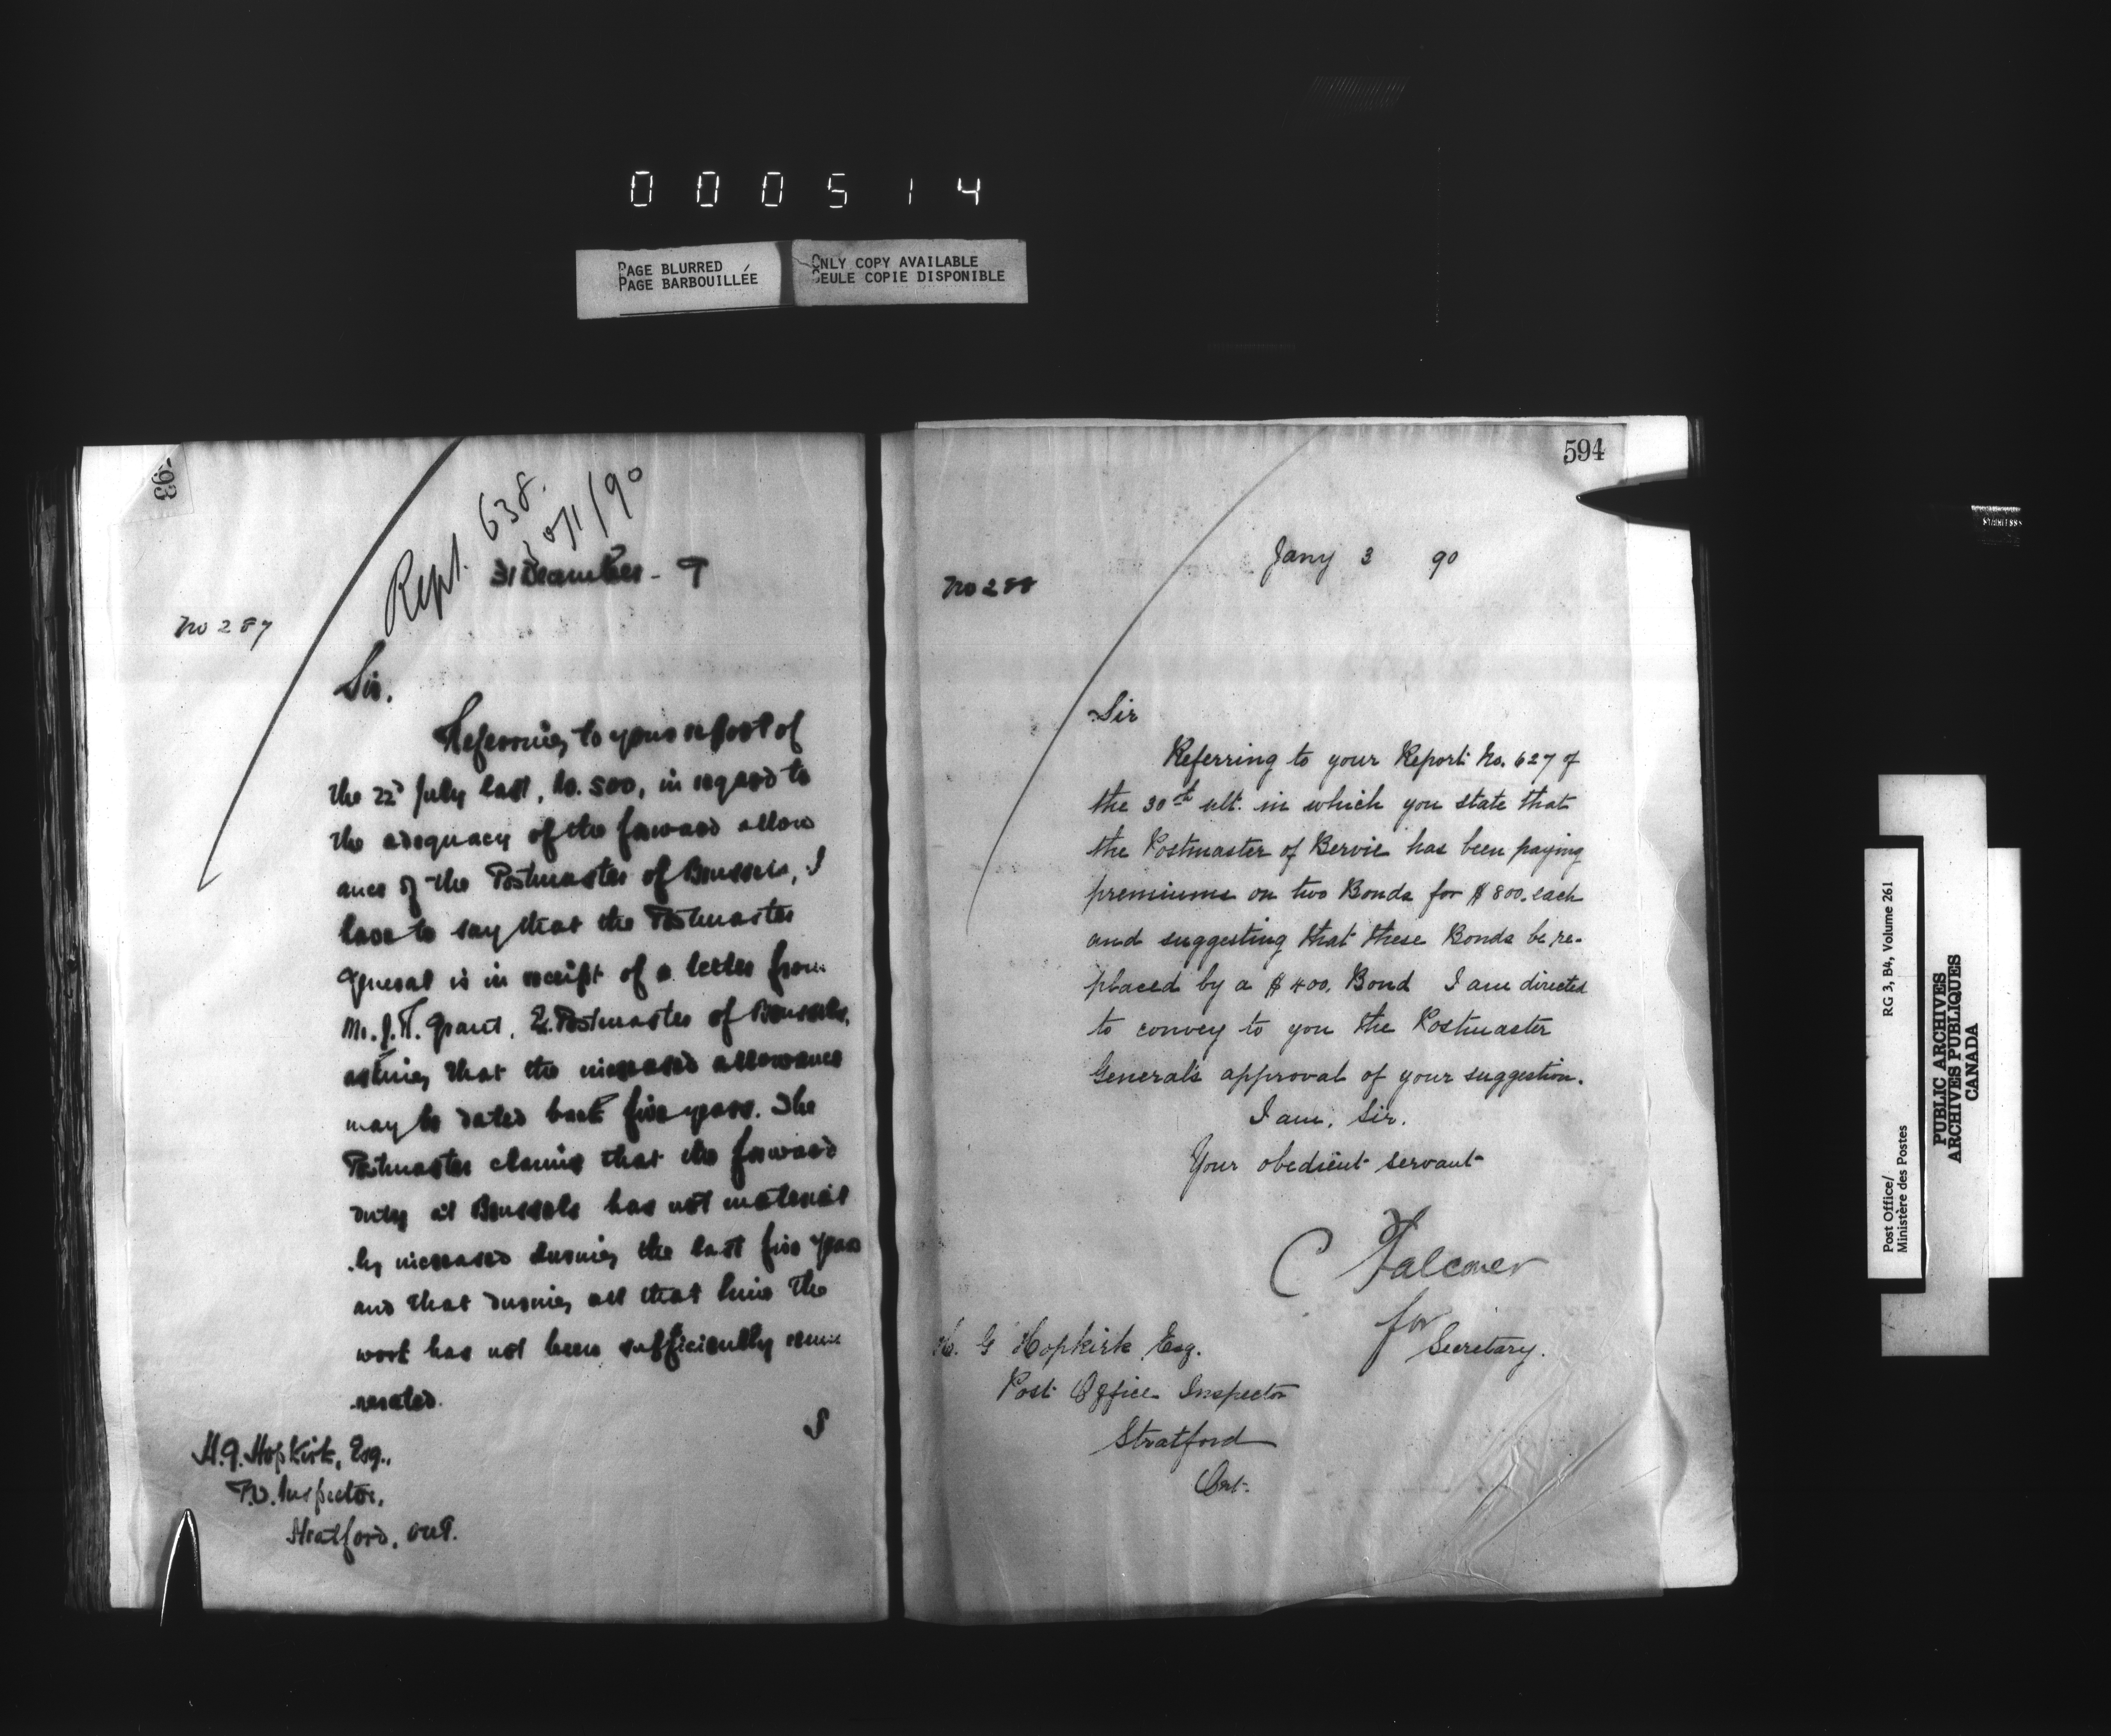 000514
PAGE BLURRED
PAGE BARBOUILLÉE
ONLY COPY AVAILABLE
SEULE COPIE DISPONIBLE
Rept. 638.
/90
31 December - 9
No 287
Sir,
Referring to your report of
the 22d July last, No. 500, in regard to
the adequacy of the forward allow
ance of the Postmaster of Brussels, I
have to say that the Postmaster
General is in receipt of a letter from
Mr. J. R. Grant, Ex. Postmaster of Brussels,
asking that the increased allowance
may be dated back five years. The
Postmaster claims that the forward
duty at Brussels has not material
ly increased during the last five years
and that during all that time the
work has not been sufficiently remu
nerated.
H.G. Hopkirk, Esq.,
P.O. Inspector,
Stratford, Ont.
594
Jany 3 90
No 288
Sir
Referring to your Report No. 627 of
the 30th ult. in which you state that
the Postmaster of Bervie has been paying
premiums on two Bonds for $800. each
and suggesting that these Bonds be re-
placed by a $400. Bond I am directed
to convey to you the Postmaster
General's approval of your suggestion.
I am, Sir.
Your obedient servant
C Falconer
for
Secretary.
H. G Hopkirk Esq.
Post Office Inspector
Stratford
Ont.
Post Office/
Ministère des Postes
RG 3, B4, Volume 261
PUBLIC ARCHIVES
ARCHIVES PUBLIQUES
CANADA